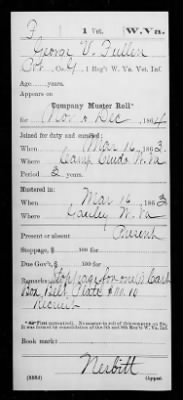 F 1 Vet. W.Va.
George V. Fuller
Pvt, Co. G, 1 Reg't W. Va. Vet. Inf.
Age years.
Appears on
Company Muster Roll*
for Nov & Dec, 1864
Joined for duty and enrolled:
When Mar 16, 1863.
Where Camp W.Va
Period 3 years.
Mustered in:
When Mar 16, 1863
Where Gauley W. Va
Present or absent Present
Stoppage, $ 100 for
Due Gov't, $ 100 for
Remarks: Stoppage for one (1) Cart
Box, Belt, Plate $
Recruit
Book mark:
Nesbitt
(358d) Copyist.